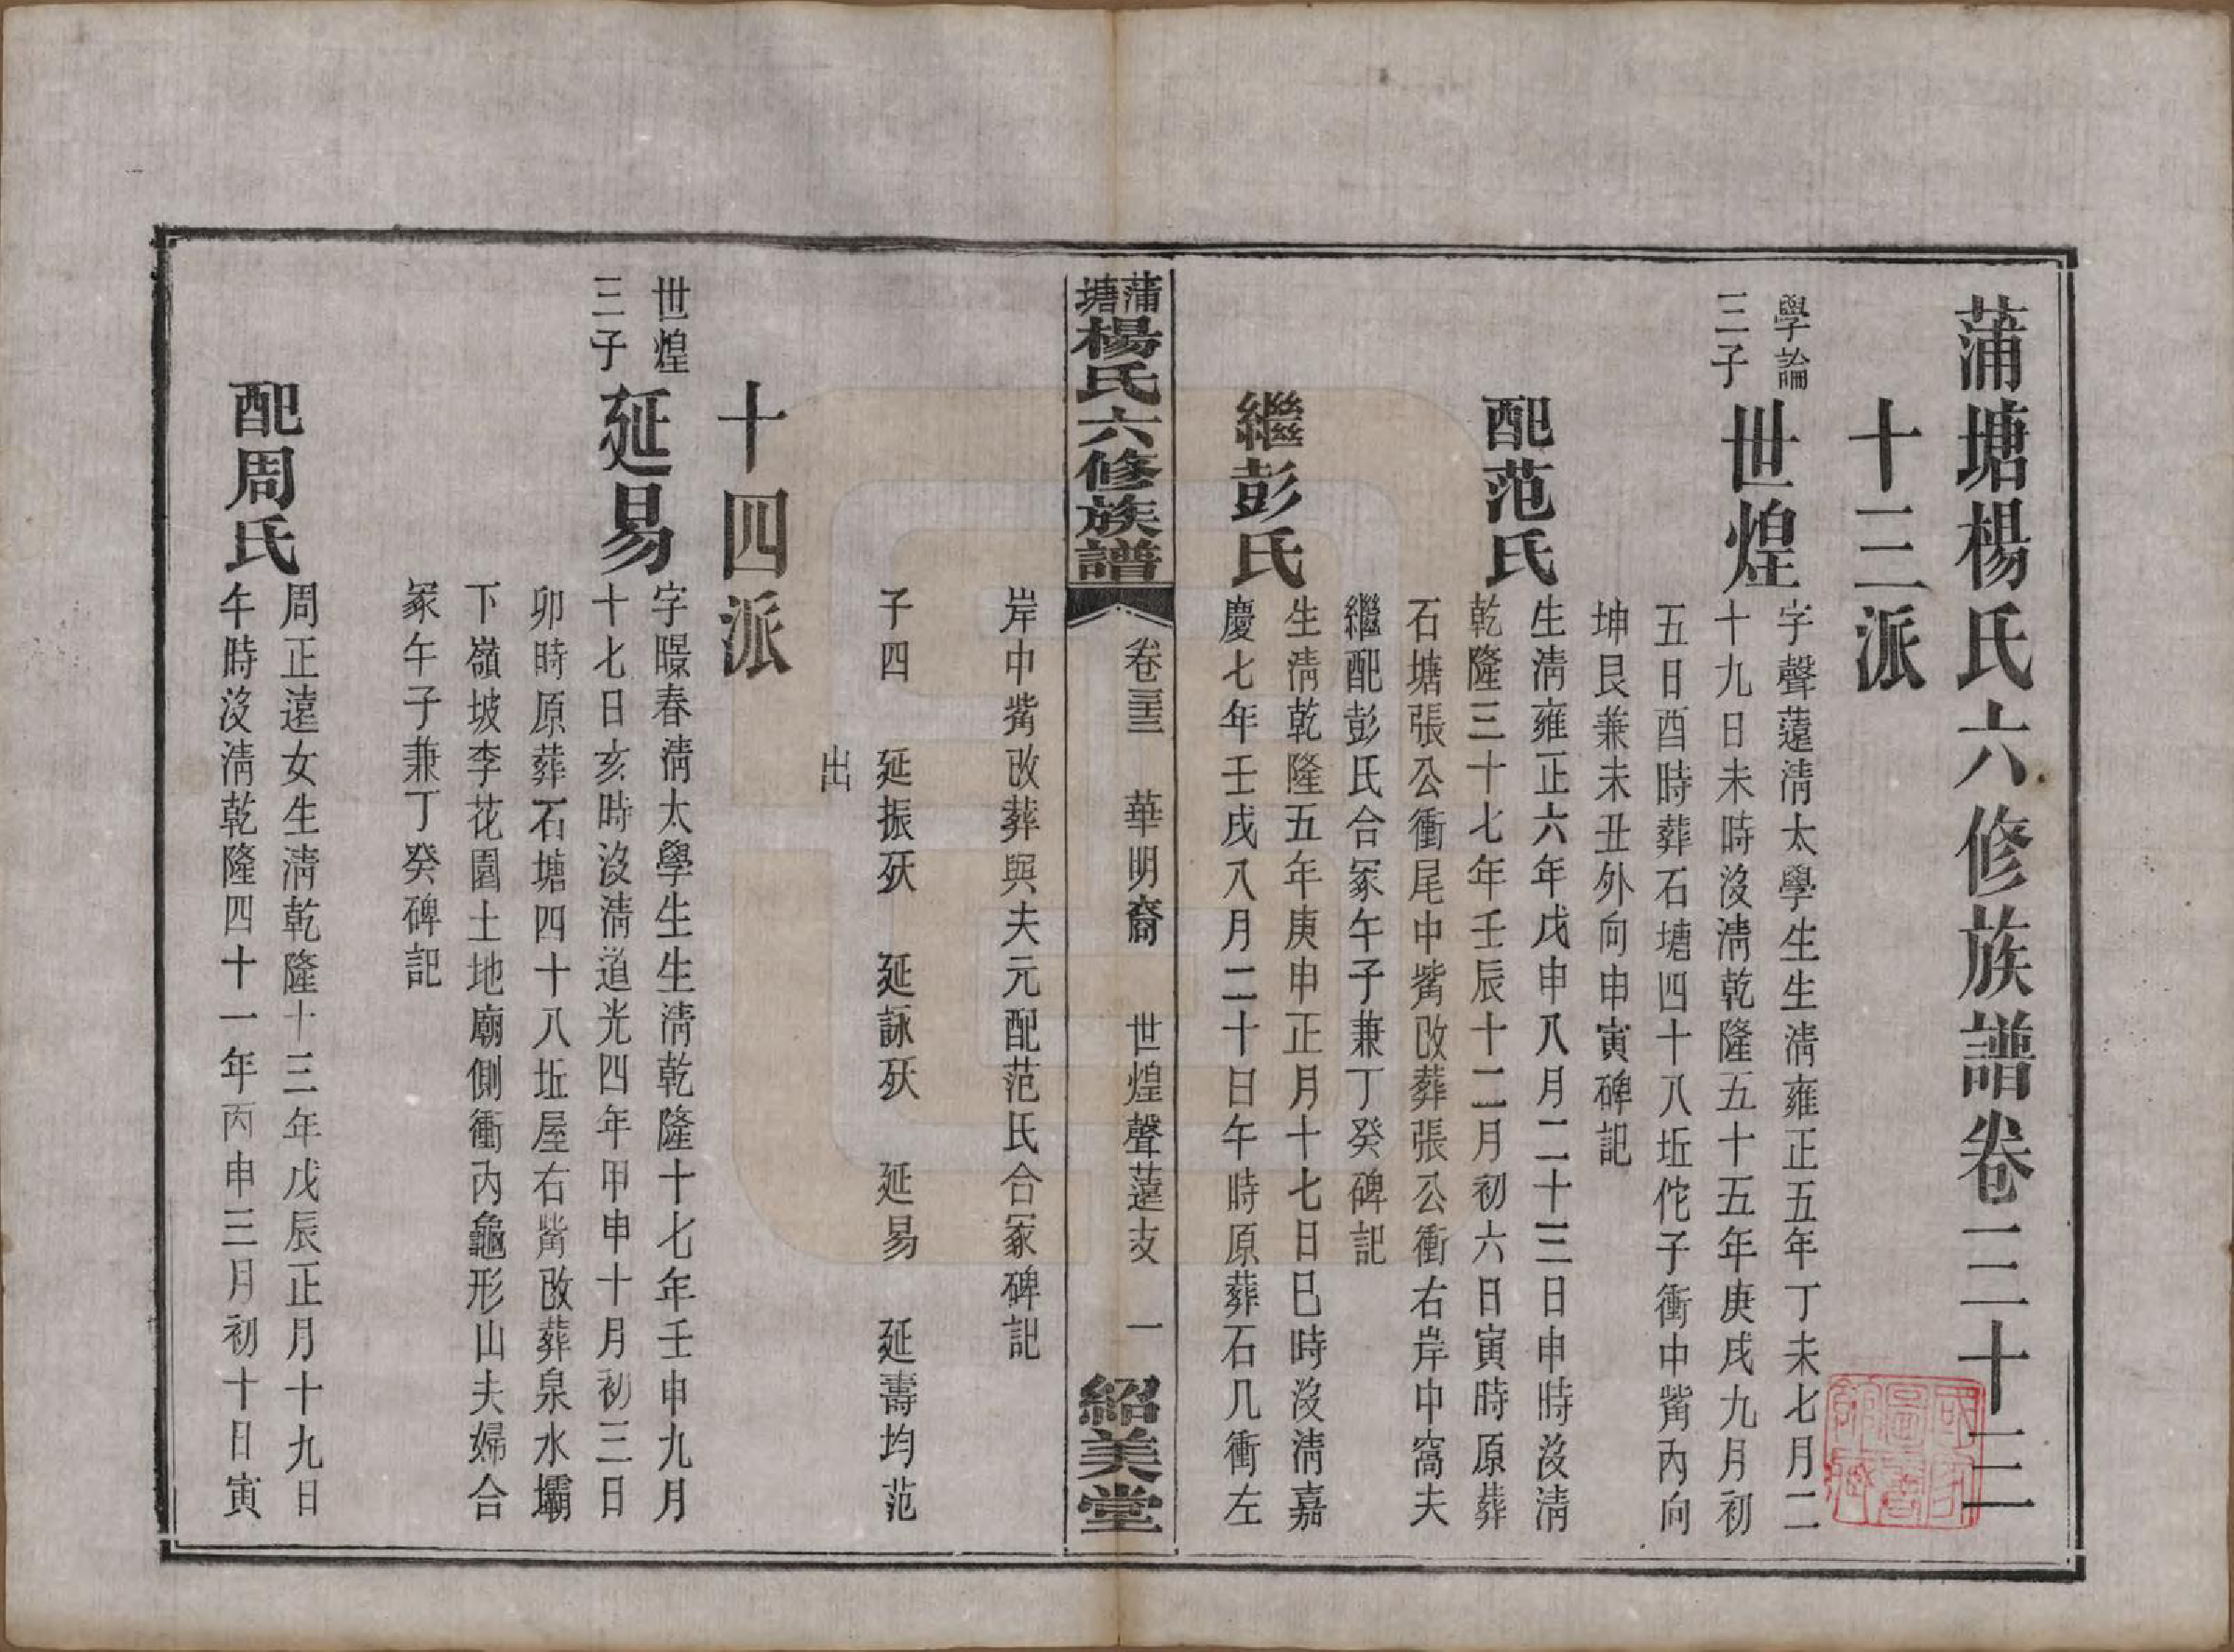 蒲塘楊氏六修族譜卷三十三
十三派
學論
三子
世煌
字聲薳淸太學生生淸雍正五年丁未七月二
十九日未時沒淸乾隆五十五年庚戌九月初
五日酉時葬石塘四十八坵佗子衝中觜內向
坤艮兼未丑外向申寅碑記
配范氏
生淸雍正六年戊申八月二十三日申時沒淸
乾隆三十七年壬辰十二月初六日寅時原葬
石塘張公衝尾中觜改葬張公衝右岸中窩夫
繼配彭氏合冢午子兼丁癸碑記
繼彭氏
生淸乾隆五年庚申正月十七日巳時沒淸嘉
慶七年壬戌八月二十日午時原葬石几衝左
蒲塘楊氏六修族譜 卷三十三 華明裔 世煌聲薳支 一 紹美堂
岸中觜改葬與夫元配范氏合冢碑記
子四 延振殀 延詠殀 延易 延壽均范
出
十四派
世煌
三子
延易
字暻春淸太學生生淸乾隆十七年壬申九月
十七日亥時沒淸道光四年甲申十月初三日
卯時原葬石塘四十八坵屋右觜改葬泉水壩
下嶺坡李花園土地廟側衝內龜形山夫婦合
冢午子兼丁癸碑記
配周氏
周正遠女生淸乾隆十三年戊辰正月十九日
午時沒淸乾隆四十一年丙申三月初十日寅